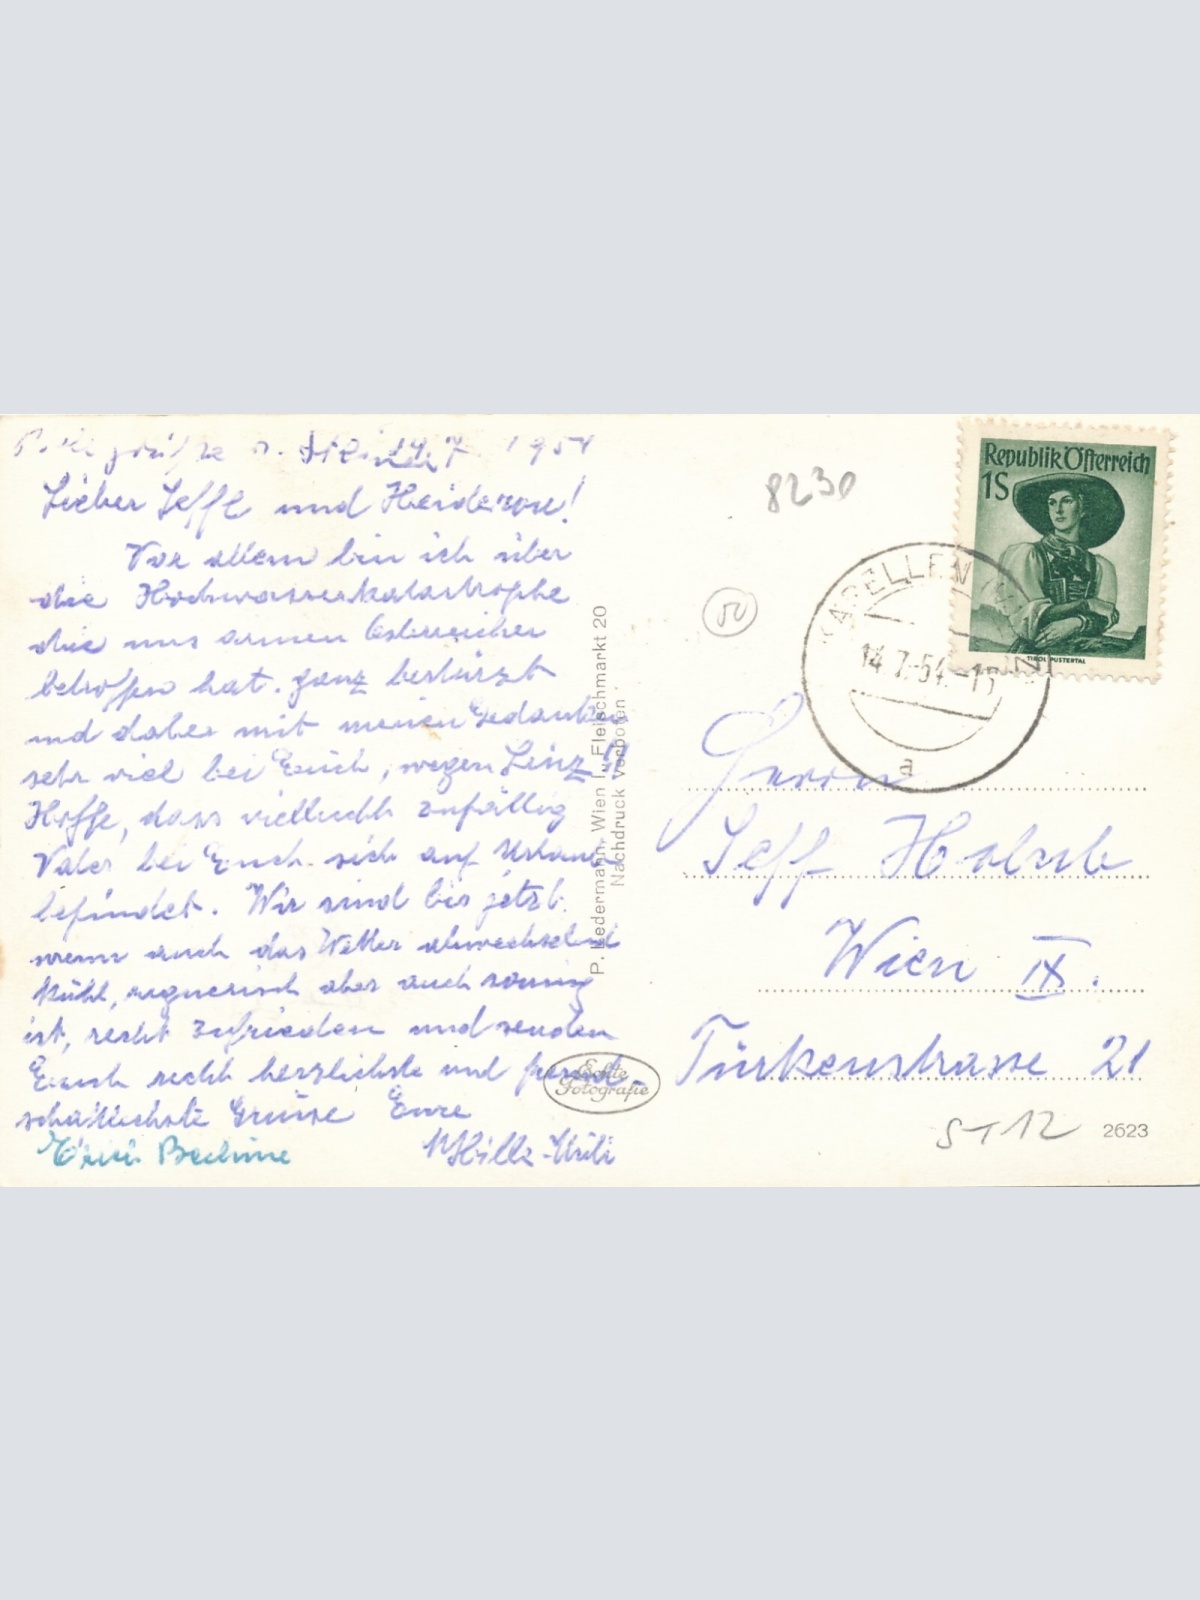 14. 7. 1954
Lieber Seffl und Heiderose!
Vor allem bin ich über
die Hochwasserkatastrophe
die uns armen Österreicher
betroffen hat. ganz bestürzt
und daher mit meinen Gedanken
sehr viel bei Euch, wegen Linz!
Hoffe, dass vielleicht zufällig
Vater bei Euch sich auf Urlaub
befindet. Wir sind bis jetzt.
wenn auch das Wetter abwechselnd
kühl, regnerisch aber auch sonnig
ist, recht zufrieden und senden
Euch recht herzlichste und freund-
schaftlichste Grüsse Eure
P. Ledermann, Wien I., Fleischmarkt 20
Nachdruck verboten
Echte
Fotografie
8230
50
Republik Österreich
1S
TIROL PUSTERTAL
KAPELLEN
14.7.54.-15
a
Herrn
Seff
Wien IX.
Türkenstrasse 21
ST 12
2623